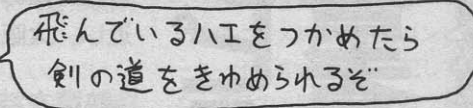 飛んでいるハエをつかめたら
剣の道をきわめられるぞ